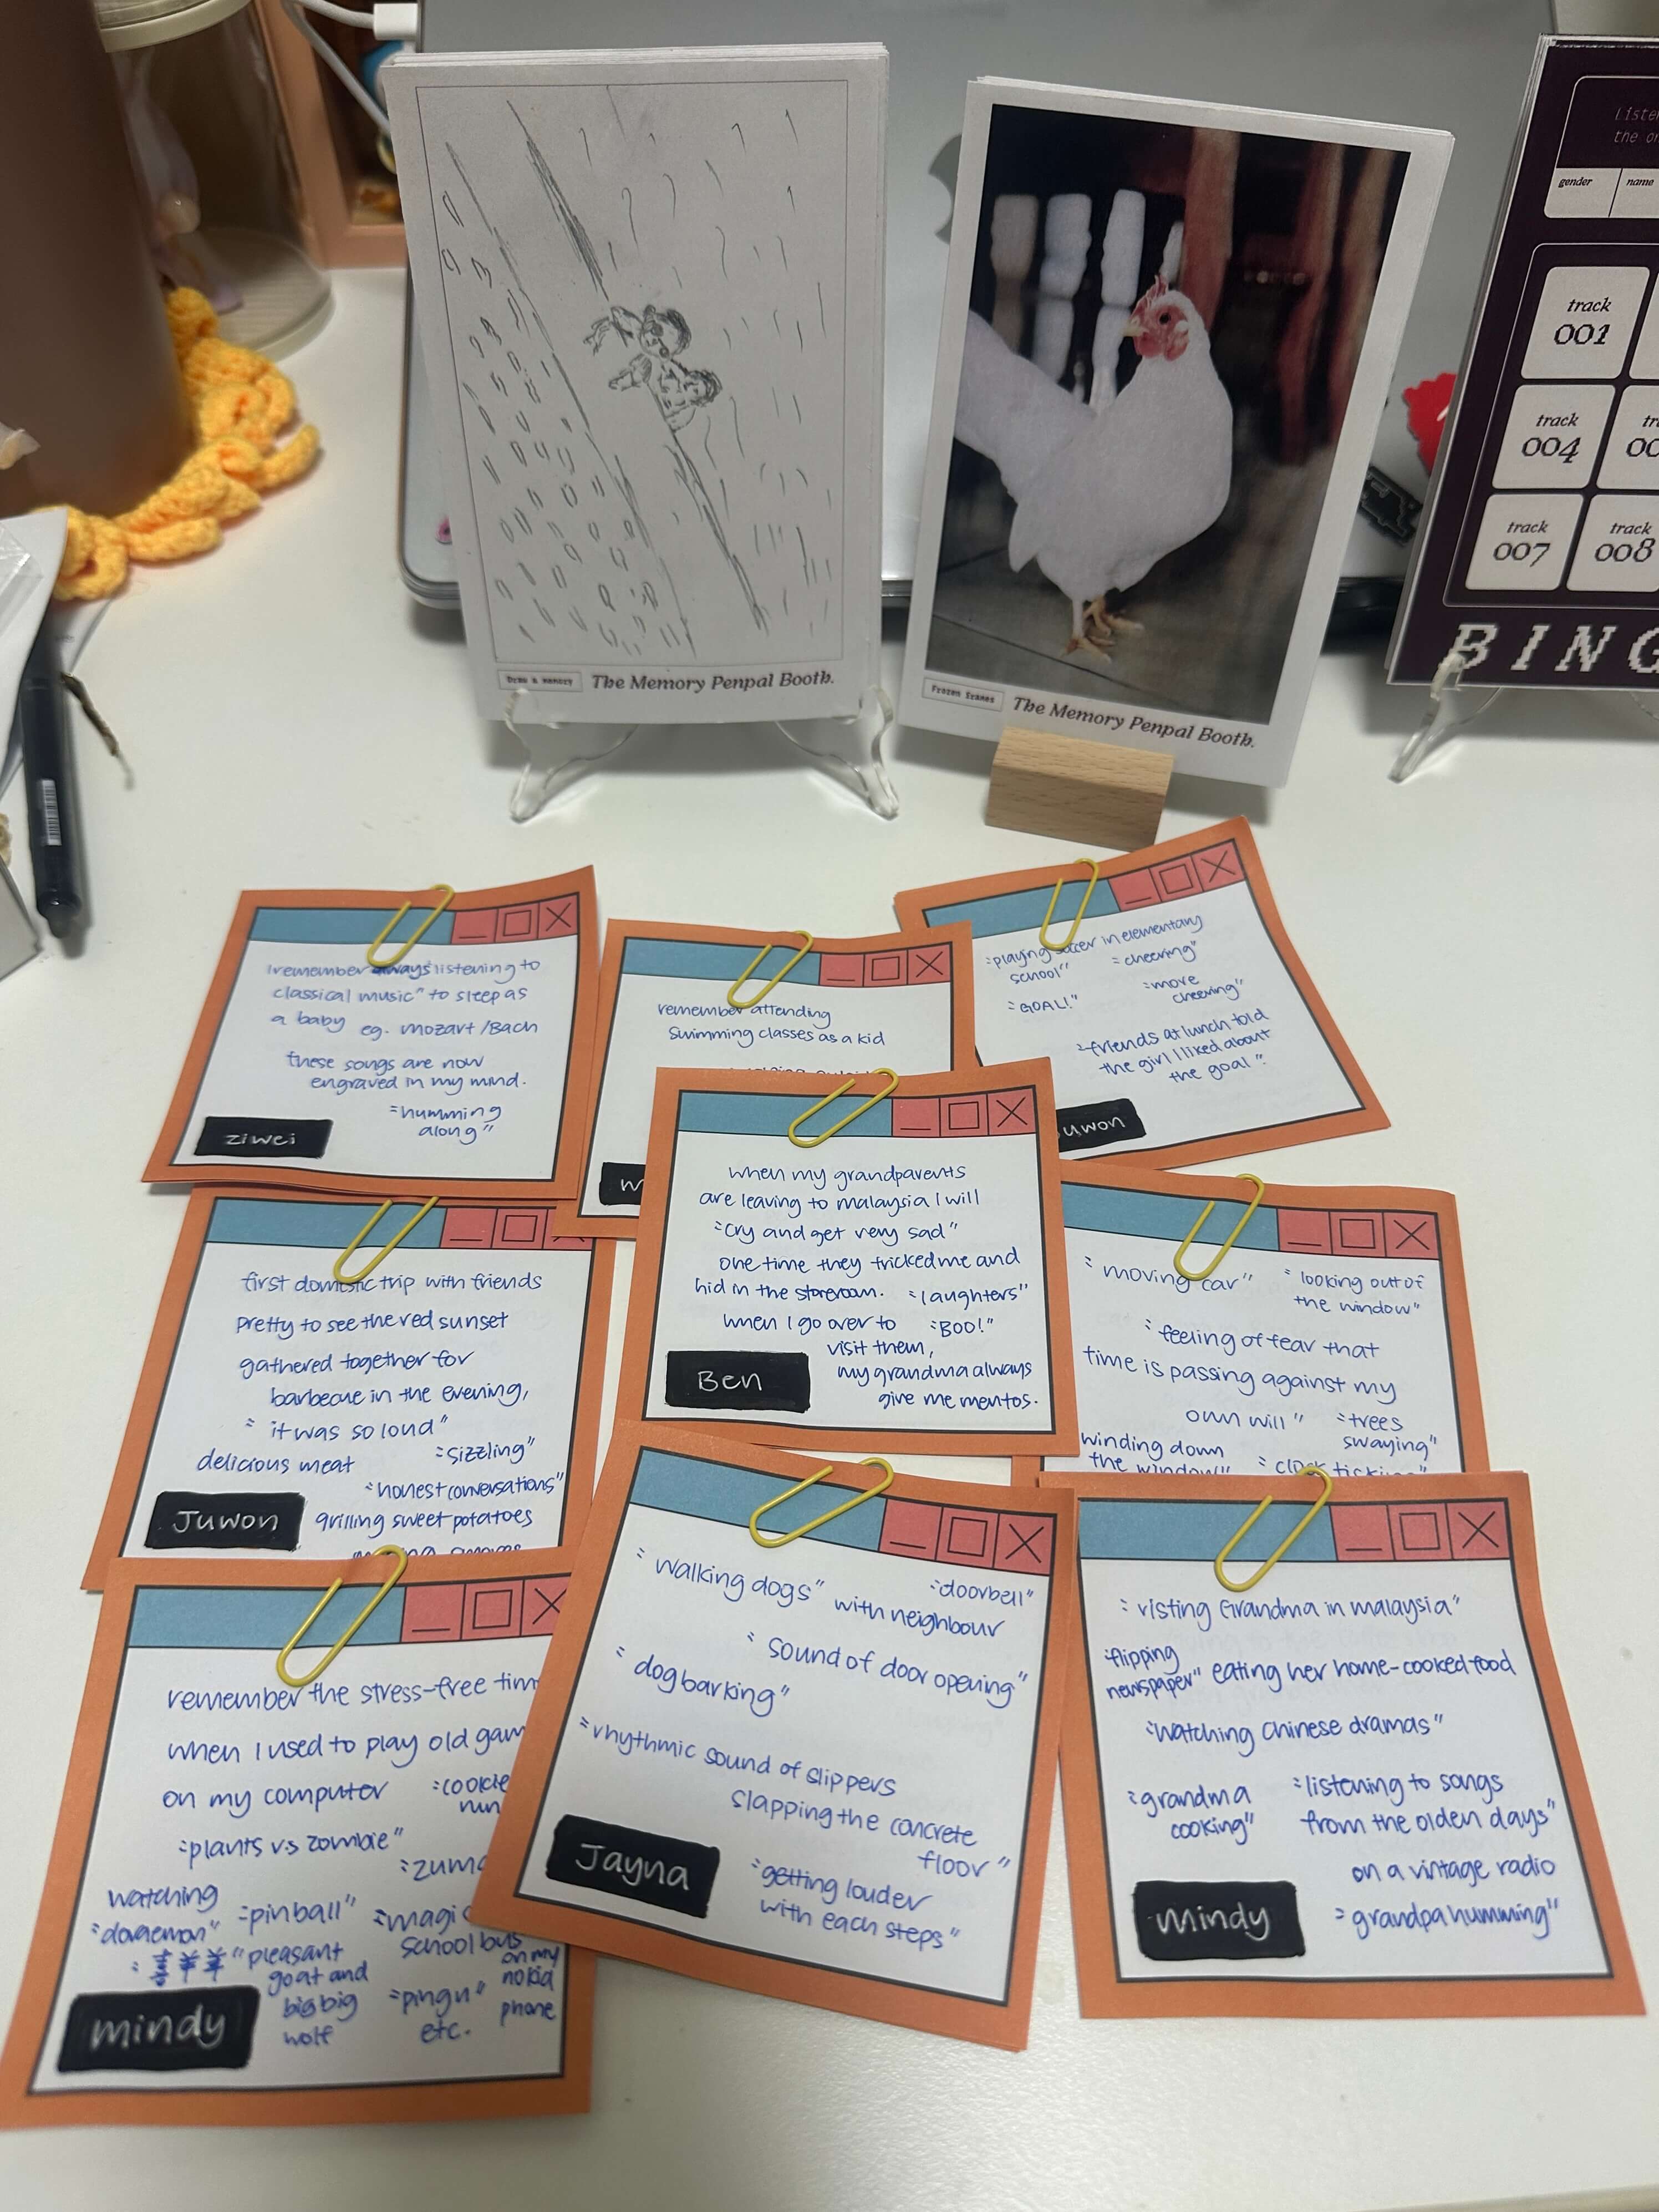 Draw a memory
The Memory Penpal Booth.
Frozen frames
The Memory Penpal Booth.
gender name
track
001
track
004
track
007
track
008
I remember always "listening to
classical music" to sleep as
a baby eg. mozart/Bach
these songs are now
engraved in my mind.
"humming
along"
ziwei
remember attending
swimming classes as a kid
"playing soccer in elementary
school"
"cheering"
"GOAL!"
"more
cheering"
"friends at lunch told
the girl I liked about
the goal".
first domestic trip with friends
pretty to see the red sunset
gathered together for
barbecue in the evening,
"it was so loud"
delicious meat "sizzling"
"honest conversations"
grilling sweet potatoes
Juwon
when my grandparents
are leaving to malaysia I will
"cry and get very sad"
one time they tricked me and
hid in the storeroom. "laughters"
when I go over to "BOO!"
visit them,
my grandma always
give me mentos.
Ben
"moving car"
"looking out of
the window"
"feeling of fear that
time is passing against my
own will"
"trees
swaying"
winding down
the window"
"clock ticking"
remember the stress-free
when I used to play old
on my computer
"plants v.s zombie"
watching
"doraemon"
"pinball"
school bus
"喜羊羊" pleasant
goat and
big big
wolf
"pingu"
etc.
on my
nokia
phone
mindy
"walking dogs" with neighbour
"doorbell"
"sound of door opening"
"dog barking"
"rhythmic sound of slippers
slapping the concrete
floor"
"getting louder
with each steps"
Jayna
"visting Grandma in malaysia"
"flipping
newspaper" eating her home-cooked food
"watching chinese dramas"
"grandma
cooking"
"listening to songs
from the olden days"
on a vintage radio
"grandpa humming"
mindy